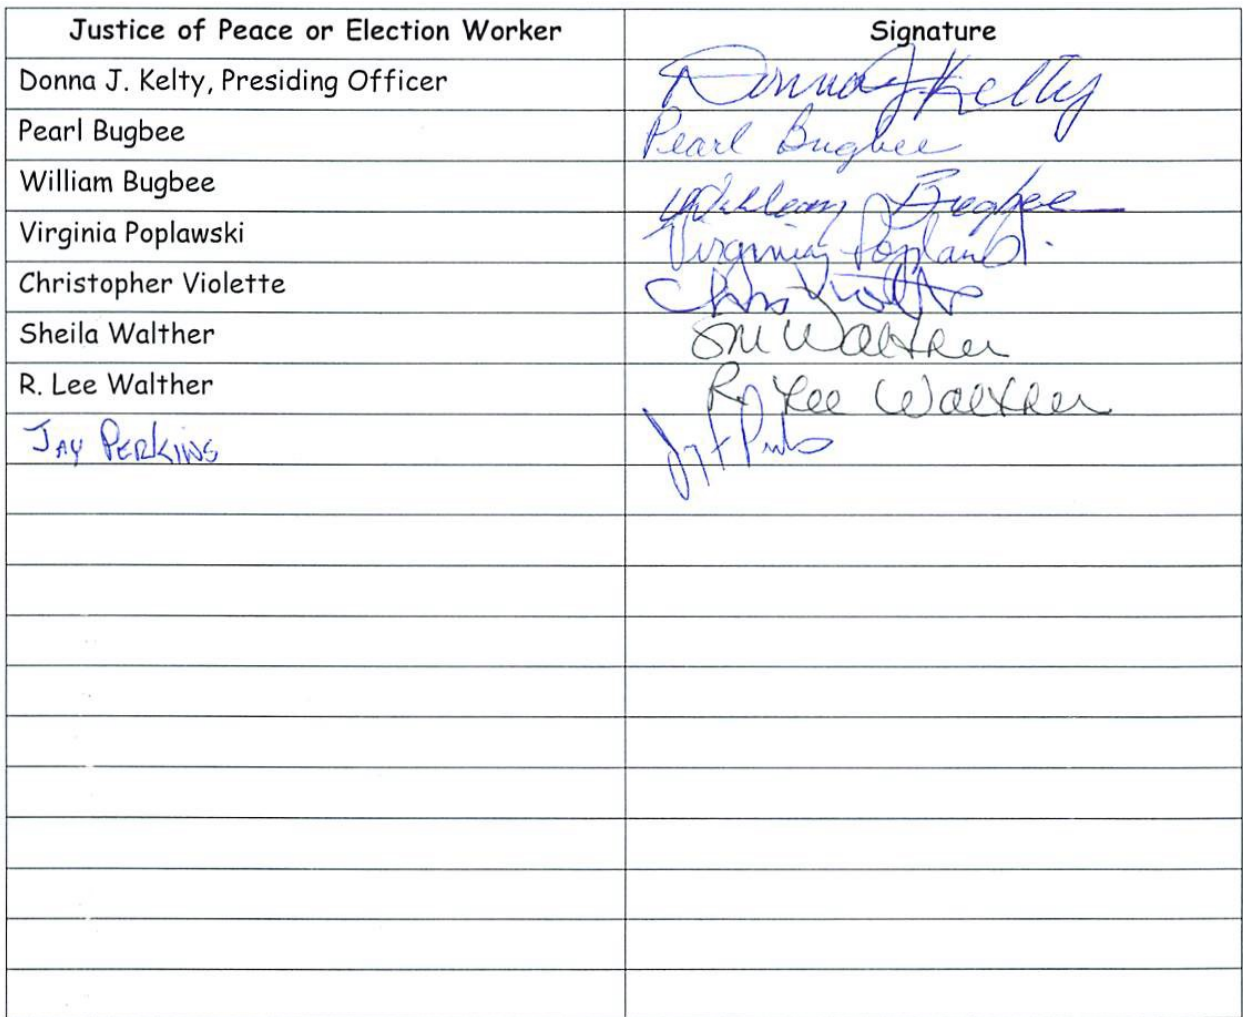 Justice of Peace or Election Worker Signature
Donna J. Kelty, Presiding Officer Donna J Kelty
Pearl Bugbee Pearl Bugbee
William Bugbee William Bugbee
Virginia Poplawski Virginia
Christopher Violette Chris Violette
Sheila Walther SM Walther
R. Lee Walther R. Lee Walther
JAY PERKINS